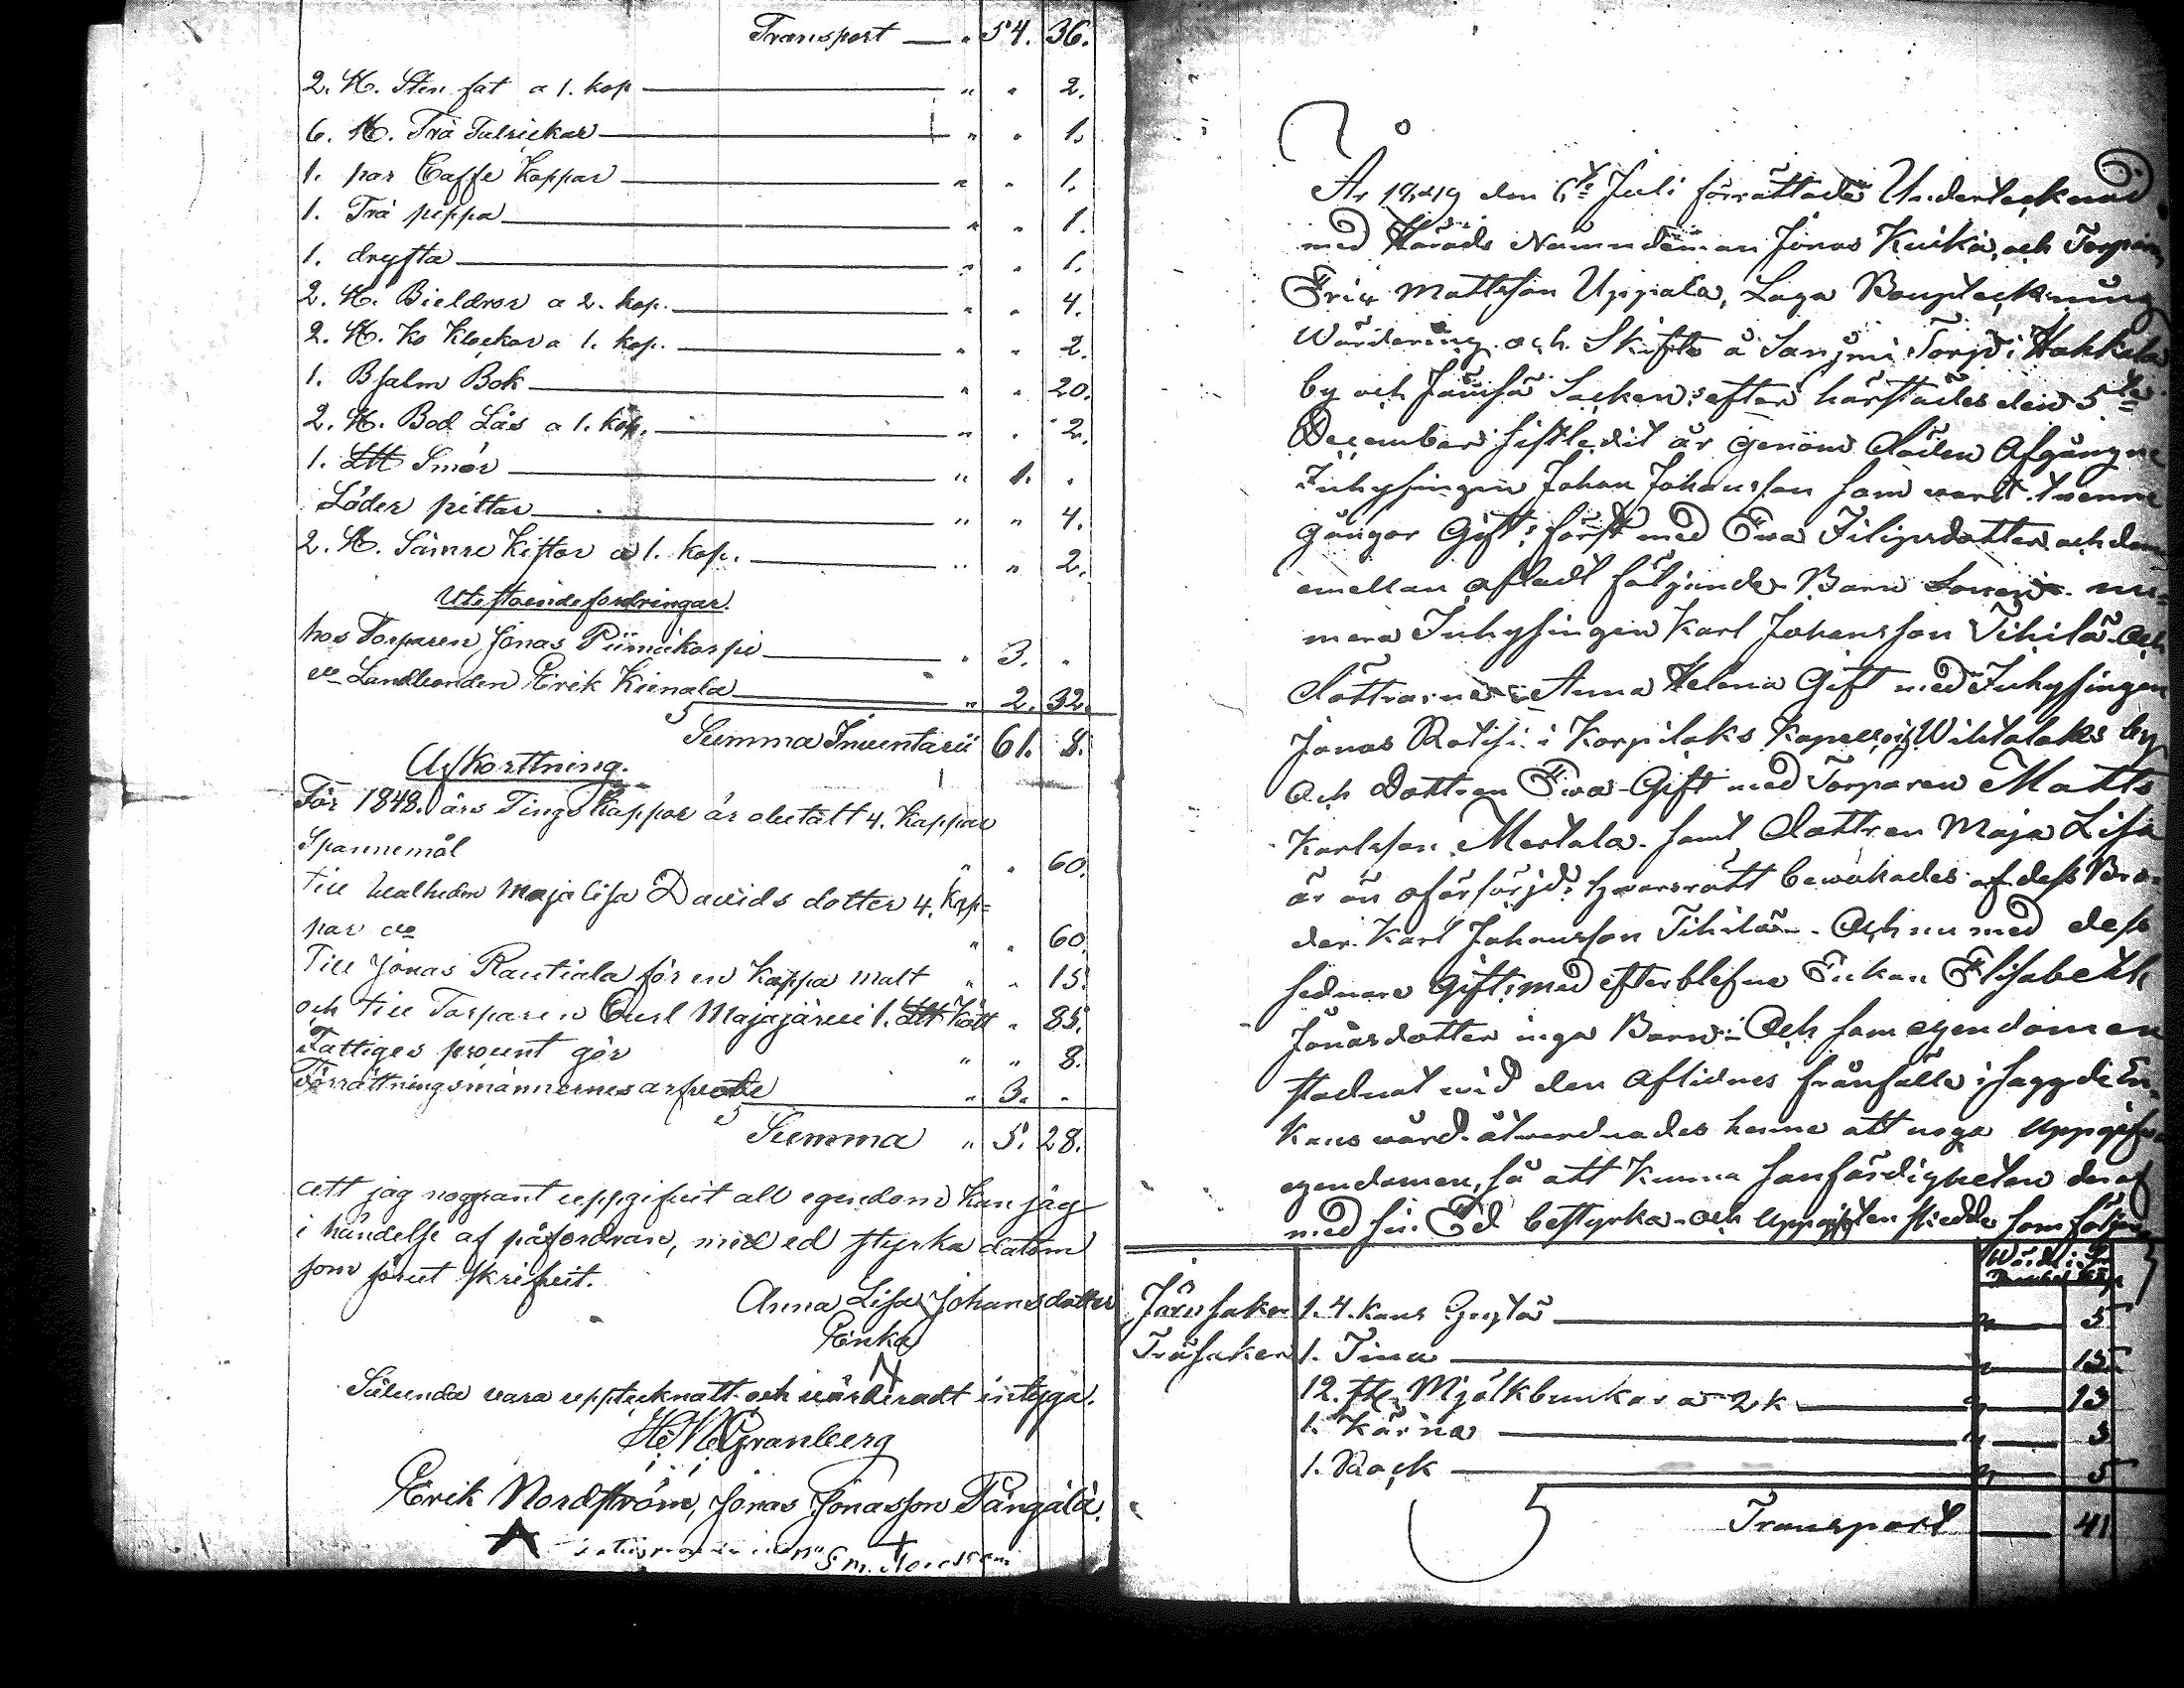 Transport — " 54. 36.
2. St. Sten fat a 1. kop — " " 2.
6. St. Trä Talrickar — " " 1.
1. par Caffe Koppar — " " 1.
1. Trä peppa — " " 1.
1. dryfta — " " 1.
2. St. Bieldror a 2. kop. — " " 4.
2. St. Ko Klockor a 1. kop. — " " 2.
1. Psalm Bok — " " 20.
2. St. Bod Lås a 1. kop. — " " 2.
1. Smör — " 1. "
Läder pittar — " " 4.
2. St. Sämre Kistor a 1. kop. — " " 2.
Utestående fordringar.
hos Torparen Jonas Piimäkorpi — " 3. "
Landbonden Erik Kienala — " 2. 32.
Summa Inventarii 61. 8.
Afkorttning.
För 1848. års Tings Kappor är obetalt 4. Kappar
Spannemål " " 60.
till Maja Lisa Davids dotter 4. Kap=
par do " " 60.
Till Jonas Rautiala för en Kappa malt " " 15.
och till Torparen Carl Majajärvi 1. Kött " 85.
Fattiges procent gör " " 8.
Förrättningsmännernes arfvode " 3. "
Summa " 5. 28.
Att jag noggrant uppgifvit all egendom kan jag
i händelse af påfordran, med ed styrka datum
som förut skrifvit.
Anna Lisa Johansdotter
Enka
Sålunda vara upptecknatt och värderadt intyga.
Granberg
Erik Nordström, Jonas Jonasson Pångälä.
År 1849 den 6te Juli förrättade Undertecknad
med Härads Nämndeman Jonas Kuikka, och Torparen
Eric Mattsson Uppala, Laga Bouptekning
Wärdering och Skifte å Torp i Hahkola
by och Jämsä Socken: efter härstädes den 5te
December sistledit år genom döden Afgångne
Inhysingen Johan Johansson som varit tvenne
gånger Gift: först med Ewa Filipsdotter och dem
emellan afladt följande Barn Sonen nu=
mera Inhysingen Karl Johansson Tihilä Och
döttrarne: Anna Helena Gift med Inhysingen
Jonas i Korpilaks Kapell och by
Och Dottren Ewa Gift med Torparen Matts
Karlsson Mertala. samt Dottren Maja Lisa
är än oförsörjd: hvarsrätt bewakades af dess Bro-
der Karl Johansson Tihilä. Och nu med dess
sednare Gift: med efterblefne Enkan Elisabeth
Jonasdotter inga Barn:- Och som egendomen
stadnat wid den Aflidnes frånfälle i sagde En-
kans wård åtwarnades henne att noga uppgifva
egendomen, så att kunna sanfärdigheten deraf
med sin Ed bestyrka och uppgiften skedde som följer
Järnsaker 1. 4. kans Gryta — " 5
Träsaker 1. Tina — " 13
12. st. Mjölkbunkar a 2 k — " 13
1. Kärna — " 5
1. Rock — " 5
Transport — 41